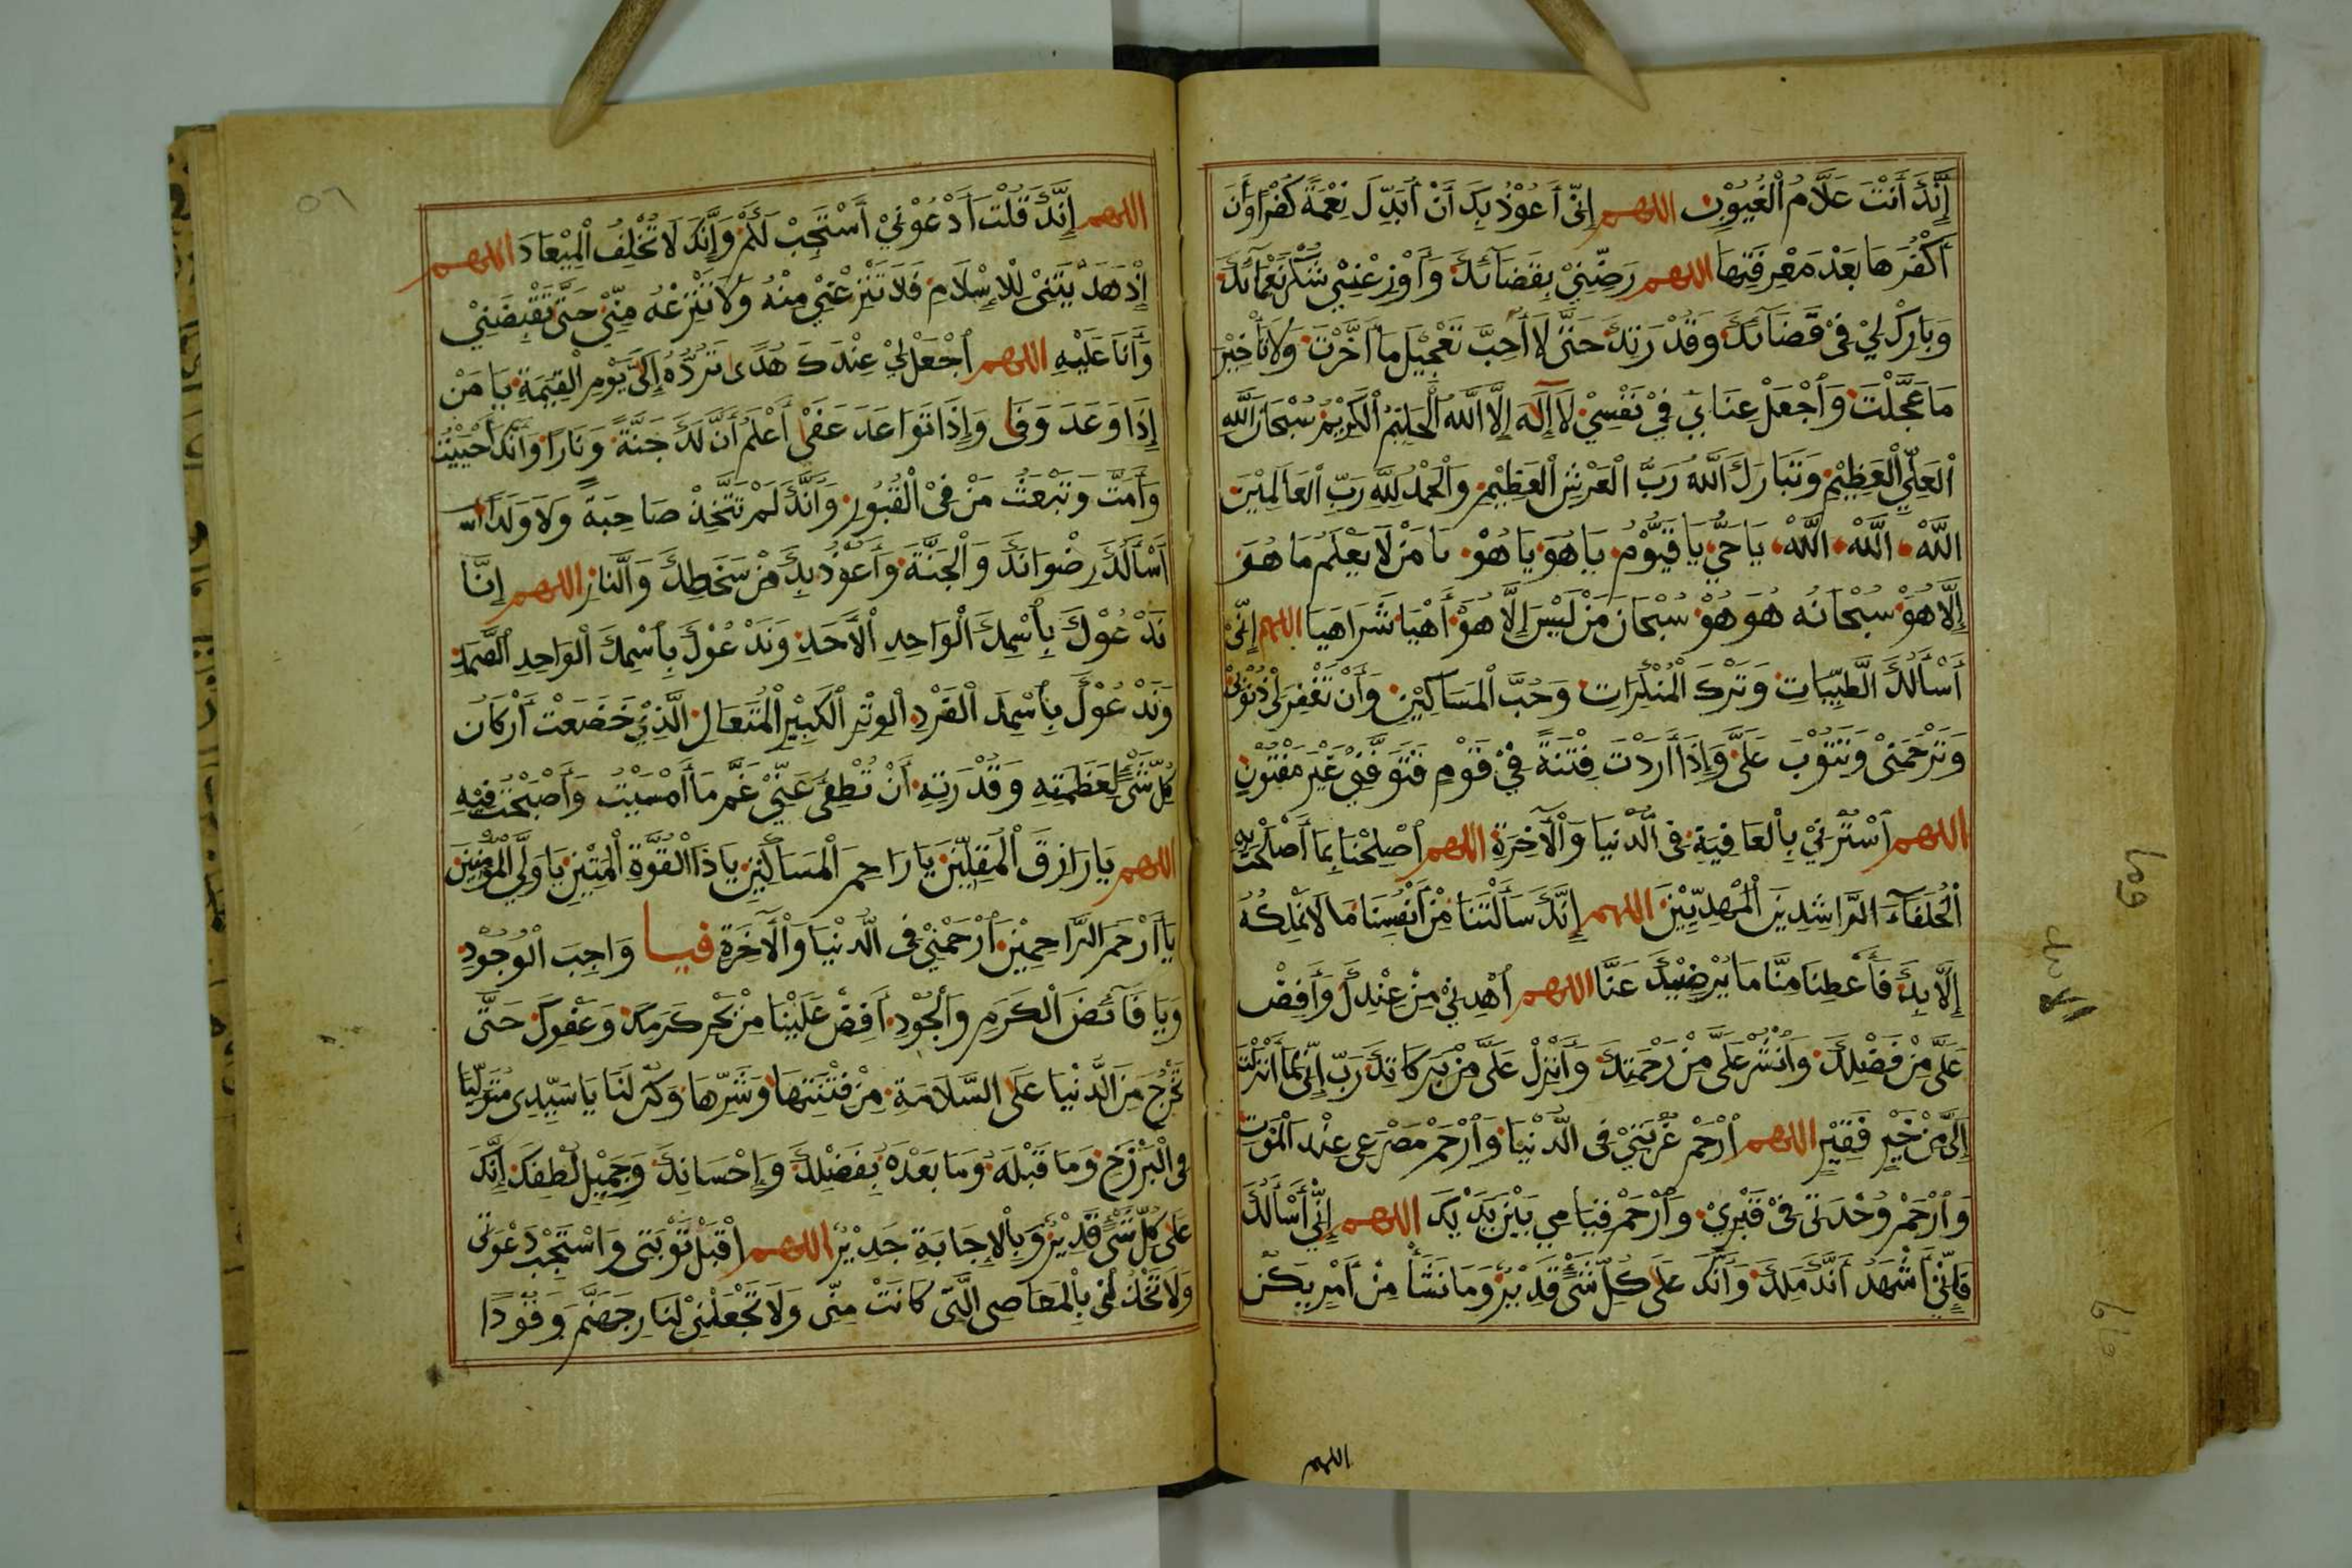 إِنَّكَ أَنْتَ عَلَّامُ الْغُيُوْبِ اللهم إِنّى أَعُوْذُ بِكَ أَنْ أُبَدِّلَ نِعْمَةً كُفْرًا وَأَنْ
أَكْفُرَهَا بَعْدَ مَعْرِفَتِهَا اللهم رَضِّنِيْ بِقَضَآئِكَ وَأَوْزِعْنِيْ شُكْرَ نَعْمَآئِكَ
وَبَارِكْ لِيْ فِىْ قَضَآئِكَ وَقُدْرَتِكَ حَتّٰى لَا أُحِبَّ تَعْجِيْلَ مَا أَخَّرْتَ وَلَا تَأْخِيْرَ
مَا عَجَّلْتَ وَٱجْعَلْ غِنَايَ فِيْ نَفْسِيْ لَا إِلٰهَ إِلَّا اللّٰهُ الْحَلِيْمُ الْكَرِيْمُ سُبْحَانَ اللّٰهِ
الْعَلِيِّ الْعَظِيْمِ وَتَبَارَكَ اللّٰهُ رَبُّ الْعَرْشِ الْعَظِيْمِ وَالْحَمْدُ لِلّٰهِ رَبِّ الْعَالَمِيْنَ
اللّٰهْ اللّٰهْ اللّٰهْ يَا حَيُّ يَا قَيُّوْمُ يَا هُوَ يَا هُوْ يَا مَنْ لَا يَعْلَمُ مَا هُوَ
إِلَّا هُوَ سُبْحَانَهُ هُوَ هُوْ سُبْحَانَ مَنْ لَيْسَ إِلَّا هُوْ أَهْيَا شَرَاهَيَا اللهم إِنّيْ
أَسْأَلُكَ الطَّيِّبَاتِ وَتَرْكَ الْمُنْكَرَاتِ وَحُبَّ الْمَسَاكِيْنِ وَأَنْ تَغْفِرَ لِيْ ذُنُوْبِىْ
وَتَرْحَمَنِىْ وَتَتُوْبَ عَلَيَّ وَإِذَا أَرَدْتَ فِتْنَةً فِيْ قَوْمٍ فَتَوَفَّنِيْ غَيْرَ مَفْتُوْنٍ
اللهم ٱسْتُرْنِيْ بِالْعَافِيَةِ فِى الدُّنْيَا وَالْآخِرَةِ اللهم ٱصْلِحْنَا بِمَا أَصْلَحْتَ بِهِ
الْخُلَفَآءَ الرَّاشِدِيْنَ الْمَهْدِيِّيْنَ اللهم إِنَّكَ سَأَلْتَنَا مِنْ أَنْفُسِنَا مَا لَا نَمْلِكُهُ
إِلَّا بِكَ فَأَعْطِنَا مِنَّا مَا يُرْضِيْكَ عَنَّا اللهم ٱهْدِنِيْ مِنْ عِنْدِكَ وَأَفِضْ
عَلَيَّ مِنْ فَضْلِكَ وَٱنْشُرْ عَلَيَّ مِنْ رَحْمَتِكَ وَأَنْزِلْ عَلَيَّ مِنْ بَرَكَاتِكَ رَبِّ إِنّيْ لِمَا أَنْزَلْتَ
إِلَيَّ مِنْ خَيْرٍ فَقِيْرٌ اللهم ٱرْحَمْ غُرْبَتِيْ فِى الدُّنْيَا وَٱرْحَمْ مَصْرَعِى عِنْدَ الْمَوْتِ
وَٱرْحَمْ وُحْدَتِى فِىْ قَبْرِيْ وَٱرْحَمْ قِيَامِي بَيْنَ يَدَيْكَ اللهم إِنّيْ أَسْأَلُكَ
فَإِنّيْ أَشْهَدُ أَنَّكَ مَلِكٌ وَأَنَّكَ عَلٰى كُلِّ شَىْءٍ قَدِيْرٌ وَمَا تَشَأْ مِنْ أَمْرٍ يَكُنْ
اللهم
اللهم إِنَّكَ قُلْتَ ٱدْعُوْنِيْ أَسْتَجِبْ لَكُمْ وَإِنَّكَ لَا تُخْلِفُ الْمِيْعَادَ اللهم
إِذْ هَدَيْتَنِىْ لِلْإِسْلَامِ فَلَا تَنْزِعْنِيْ مِنْهُ وَلَا تَنْزِعْهُ مِنّيْ حَتّٰى تَقْبِضَنِيْ
وَأَنَا عَلَيْهِ اللهم ٱجْعَلْ لِيْ عِنْدَكَ هُدًى تَرُدُّهُ إِلَيَّ يَوْمَ الْقِيٰمَةِ يَا مَنْ
إِذَا وَعَدَ وَفٰى وَإِذَا تَوَاعَدَ عَفٰى أَعْلَمُ أَنَّ لَكَ جَنَّةً وَنَارًا وَأَنَّكَ أَحْيَيْتَ
وَأَمَتَّ وَتَبْعَثُ مَنْ فِى الْقُبُوْرِ وَأَنَّكَ لَمْ تَتَّخِذْ صَاحِبَةً وَلَا وَلَدًا
أَسْأَلُكَ رِضْوَانَكَ وَالْجَنَّةَ وَأَعُوْذُ بِكَ مِنْ سَخَطِكَ وَالنَّارِ اللهم إِنَّا
نَدْعُوْكَ بِٱسْمِكَ الْوَاحِدِ الْأَحَدِ وَنَدْعُوْكَ بِٱسْمِكَ الْوَاحِدِ الصَّمَدِ
وَنَدْعُوْكَ بِٱسْمِكَ الْفَرْدِ الْوِتْرِ الْكَبِيْرِ الْمُتَعَالِ الَّذِيْ خَضَعَتْ أَرْكَانُ
كُلِّ شَىْءٍ لِعَظَمَتِهِ وَقُدْرَتِهِ أَنْ تُطْفِئَ عَنّيْ غَمَّ مَا أَمْسَيْتُ وَأَصْبَحْتُ فِيْهِ
اللهم يَا رَازِقَ الْمُقِلِّيْنَ يَا رَاحِمَ الْمَسَاكِيْنِ يَا ذَا الْقُوَّةِ الْمَتِيْنِ يَا وَلِيَّ الْمُؤْمِنِيْنَ
يَا أَرْحَمَ الرَّاحِمِيْنَ ٱرْحَمْنِيْ فِى الدُّنْيَا وَالْآخِرَةِ فيا وَاجِبَ الْوُجُوْدِ
وَيَا فَآئِضَ الْكَرَمِ وَالْجُوْدِ أَفِضْ عَلَيْنَا مِنْ بَحْرِ كَرَمِكَ وَعَفْوِكَ حَتّٰى
نَخْرُجَ مِنَ الدُّنْيَا عَلَى السَّلَامَةِ مِنْ فِتْنَتِهَا وَشَرِّهَا وَكُنْ لَنَا يَا سَيِّدِى مُتَوَلِّيًا
فِى الْبَرْزَخِ وَمَا قَبْلَهُ وَمَا بَعْدَهُ بِفَضْلِكَ وَإِحْسَانِكَ وَجَمِيْلِ لُطْفِكَ إِنَّكَ
عَلٰى كُلِّ شَىْءٍ قَدِيْرٌ وَبِالْإِجَابَةِ جَدِيْرٌ اللهم ٱقْبَلْ تَوْبَتِى وَاسْتَجِبْ دَعْوَتِى
وَلَا تَخْذُلْنِى بِالْمَعَاصِى الَّتِى كَانَتْ مِنّى وَلَا تَجْعَلْنِيْ لِنَارِ جَهَنَّمَ وَقُوْدًا